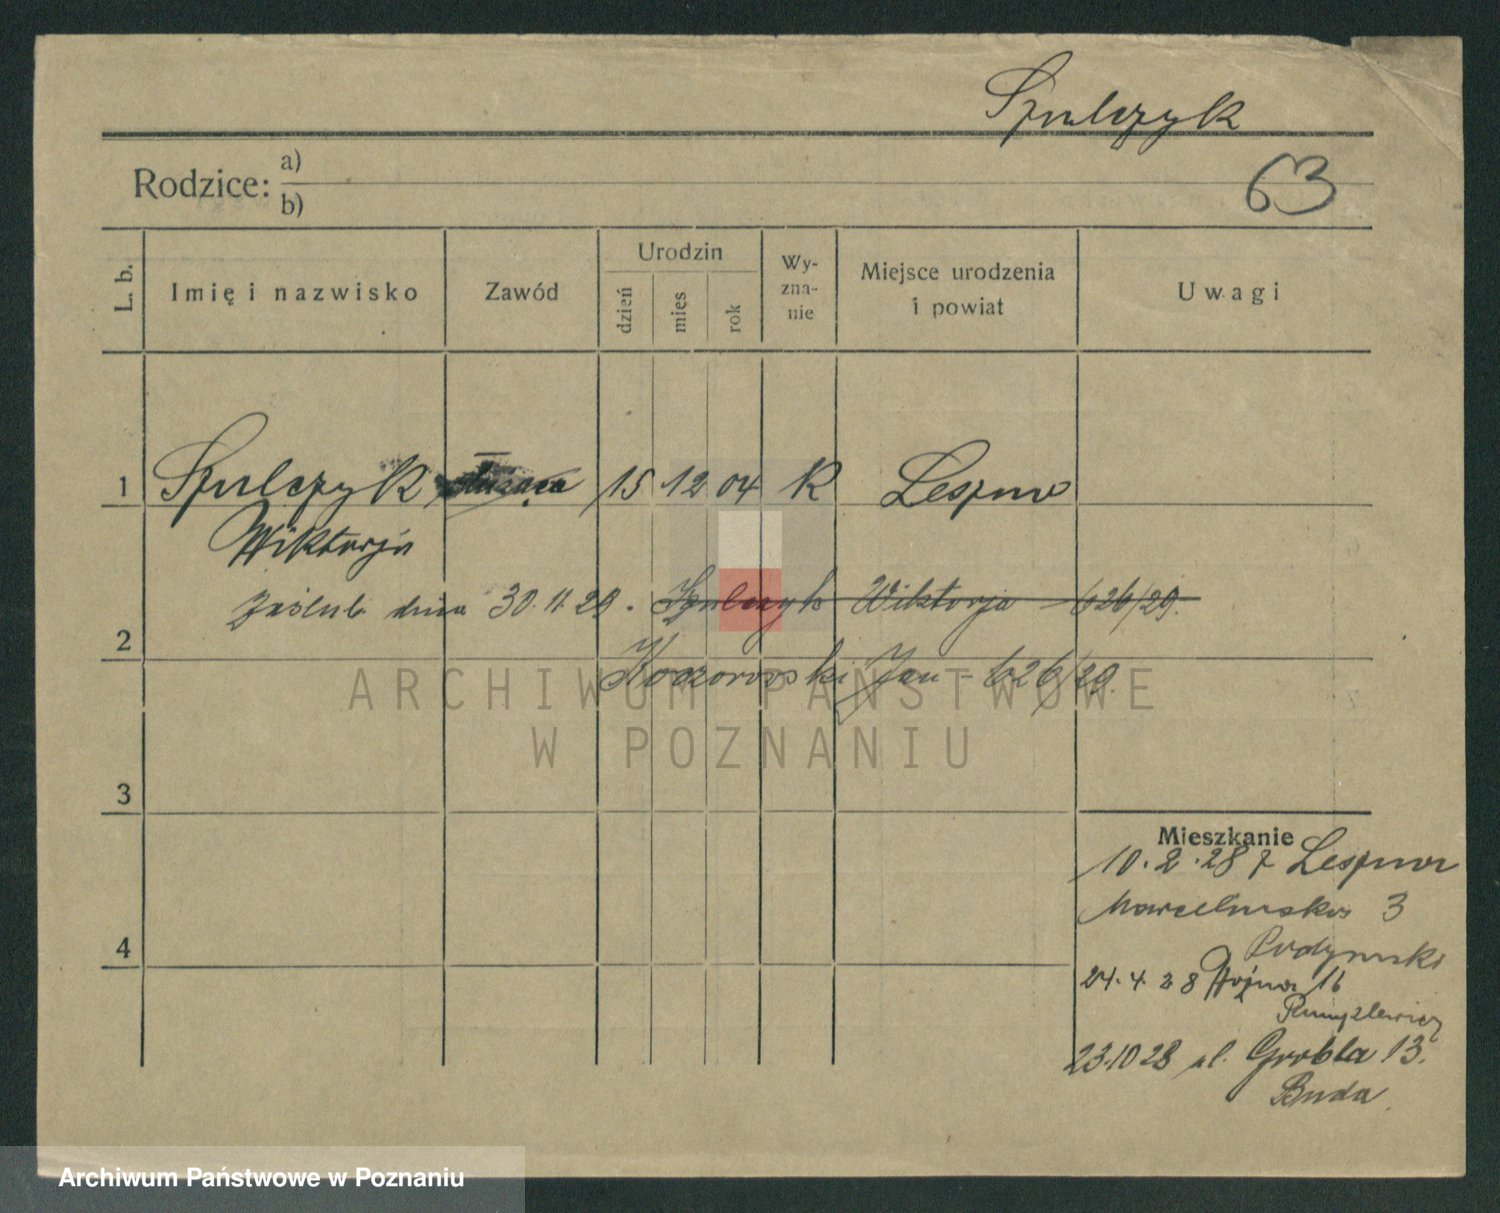 Szulczyk
63
Rodzice: a)
b)
L. b. Imię i nazwisko Zawód Urodzin dzień mies rok Wy-zna-nie Miejsce urodzenia i powiat Uwagi
1 Szulczyk służąca 15 12 04 K Leszno
Wiktorja
zaślub. dnia 30.11.29. Szulczyk Wiktorja 626/29.
2
Koczorowski Jan - 626/29.
ARCHIWUM PAŃSTWOWE
W POZNANIU
3
Mieszkanie
10.2.28 z Leszna
3
4
24.4.28 16
23.10 28 ul. Grobla 13.
Buda
Archiwum Państwowe w Poznaniu